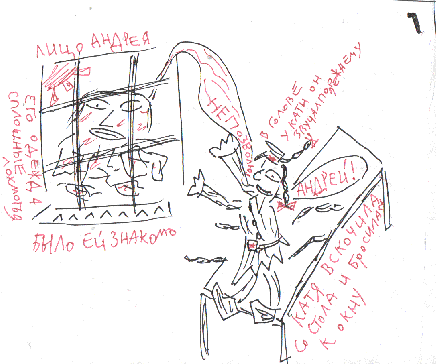 7
ЛИЦО АНДРЕЯ
ЕГО ОДЕЖДА
СПЛОШНЫЕ
ЛОХМОТЬЯ
БЫЛО ЕЙ ЗНАКОМО
НЕТ
В ГОЛОВЕ
У КАТИ ОН
ЗВУЧАЛ
АНДРЕЙ!
КАТЯ ВСКОЧИЛА
СО СТОЛА И БРОСИЛАСЬ
К ОКНУ